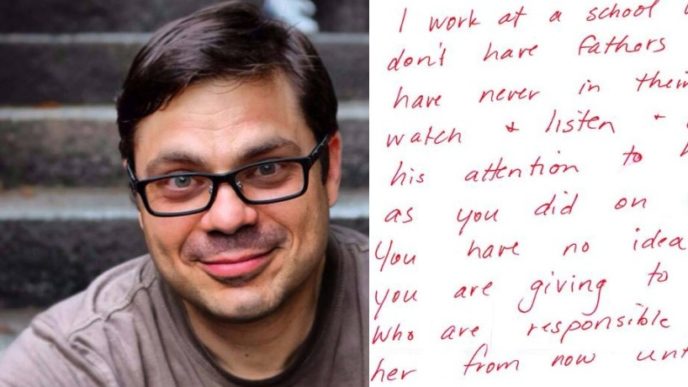 I work at a school
don't have fathors
have never in their
watch + listen +
his attention to
as you did on
You have no idea
you are giving to
who are responsible
her from now unt